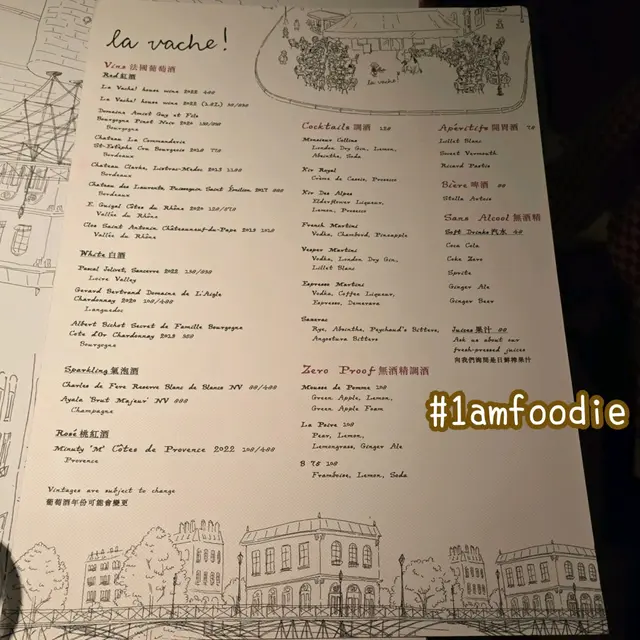 la vache!
Vins 法國葡萄酒
Red 紅酒
La Vache! house wine 2022 400
La Vache! house wine 2022 (1.0L)
Domaine Amiot Guy et Fils
Bourgogne Pinot Noir 2020
Bourgogne
Chateau La Commanderie
St-Estèphe Cru Bourgeois 2010
Bordeaux
Chateau Clarke, Listrac-Medoc 2013
Bordeaux
Chateau des Laurents, Puisseguin, Saint Émilion 2017
Bordeaux
E. Guigal Côtes du Rhône 2020
Vallée du Rhône
Clos Saint Antonin Châteauneuf-du-Pape 2019
Vallée du Rhône
White 白酒
Pascal Jolivet, Sancerre 2022
Loire Valley
Gerard Bertrand Domaine de L'Aigle
Chardonnay 2020
Languedoc
Albert Bichot Secret de Famille Bourgogne
Cote d'Or Chardonnay 2019
Bourgogne
Sparkling 氣泡酒
Charles de Fere Reserve Blanc de Blancs NV
Ayala 'Brut Majeur' NV
Champagne
Rosé 桃紅酒
Minuty 'M' Côtes de Provence 2022
Provence
Vintages are subject to change
葡萄酒年份可能會變更
la vache!
Cocktails 調酒 120
Monsieur Collins
London Dry Gin, Lemon,
Absinthe, Soda
Kir Royal
Crème de Cassis, Prosecco
Kir Des Alpes
Elderflower Liqueur,
Lemon, Prosecco
French Martini
Vodka, Chambord, Pineapple
Vesper Martini
Vodka, London Dry Gin,
Lillet Blanc
Espresso Martini
Vodka, Coffee Liqueur,
Espresso, Demerara
Sazerac
Rye, Absinthe, Peychaud's Bitters,
Angostura Bitters
Zero Proof 無酒精調酒
Mousse de Pomme
Green Apple, Lemon,
Green Apple Foam
La Poire
Pear, Lemon,
Lemongrass, Ginger Ale
B 75
Framboise, Lemon, Soda
Apéritifs 開胃酒 70
Lillet Blanc
Sweet Vermouth
Ricard Pastis
Bière 啤酒
Stella Artois
Sans Alcool 無酒精
Soft Drinks 汽水 40
Coca Cola
Coke Zero
Sprite
Ginger Ale
Ginger Beer
Juices 果汁
Ask us about our
fresh-pressed juices
向我們詢問是日鮮榨果汁
#1amfoodie